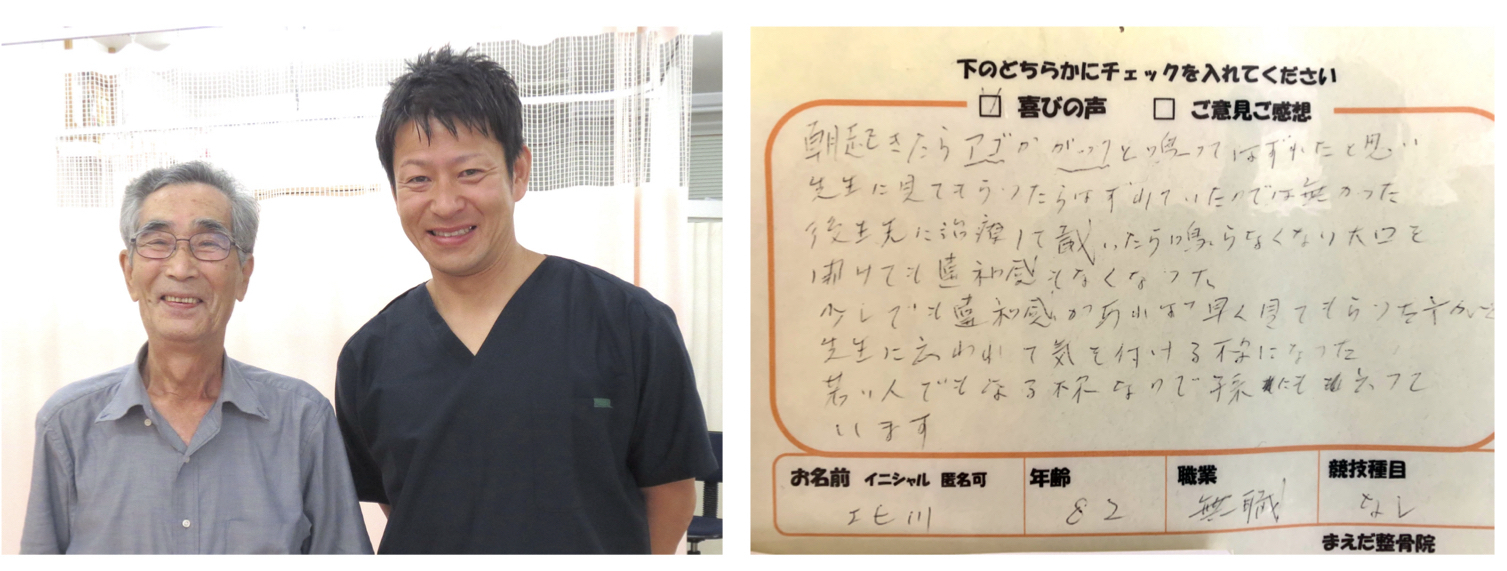 下のどちらかにチェックを入れてください
☑ 喜びの声 □ ご意見ご感想
朝起きたらアゴがガックと鳴ってはずれたと思い
先生に見てもらったらはずれていたのでは無かった
後先生に治療して戴いたら鳴らなくなり大口を
開けても違和感もなくなった
少しでも違和感があれば早く見てもらう
先生に云われて気を付ける様になった
若い人でもなる様なので孫にも云って
います
お名前 イニシャル 匿名可 年齢 職業 競技種目
北川 82 無職 なし
まえだ整骨院